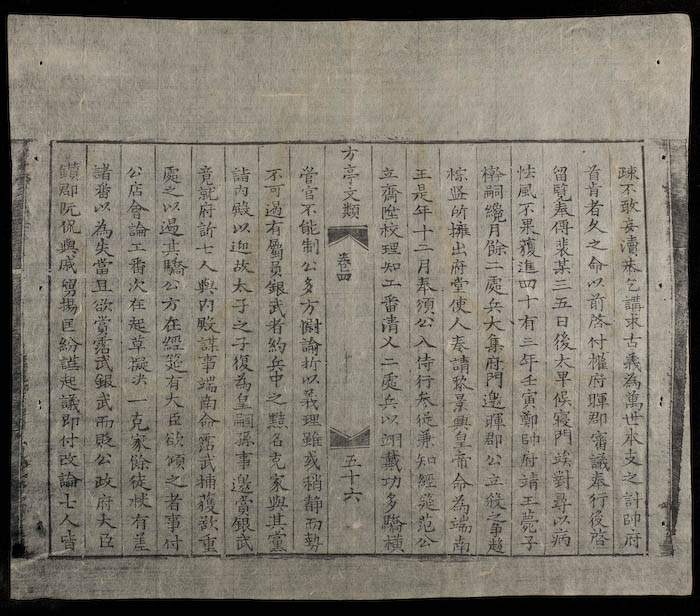 疎不敢妄瀆恭乞講求古義為萬世本支之計帥府
首肯者久之命以前啓付權府暉郡審議奉行後啓
留覧奉傳裴某三五日後太早候寢門竢對尋以病
怯風不果獲進四十有三年壬寅鄭帥府靖王薨子
檊嗣纔月餘二處兵大集府門邀暉郡公立殺之爭趨
棕竪所擁出府堂使人奉請黎景興皇帝命為端南
王是年十二月奉頒公入侍行參從兼知經筵范公
立齋陞校理知工番清乂二處兵以翊戴功多驕橫
方亭文類 卷四 五十六
管官不能制公多方慰諭折以義理雖或稍静而勢
不可遏有屬員銀武者約兵中之黠名克家與其黨
詣内殿以迎故太子之子復為皇嗣孫事邀賞銀武
竟就府訴七人與内殿謀事端南命霑武捕獲欵重
處之以遏其驕公方在經筵有大臣欲傾之者事付
公店會論工番次在起草擬决一克家餘徒悚有差
諸番以為失當且欲賞霑武銀武而貶公政府大臣
鑽郡阮侃與戚舅揚匡紛謀起議即付改論七人皆